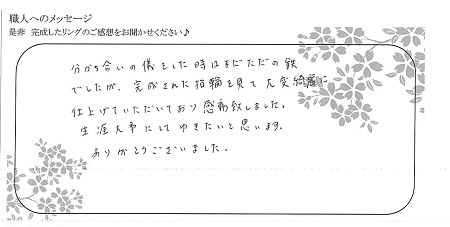 職人へのメッセージ
是非 完成したリングのご感想をお聞かせください♪
分かち合いの儀をした時はまだただの鉄
でしたが、完成された指輪を見て大変綺麗に
仕上げていただいており感動致しました。
生涯大事にしてゆきたいと思います。
ありがとうございました。